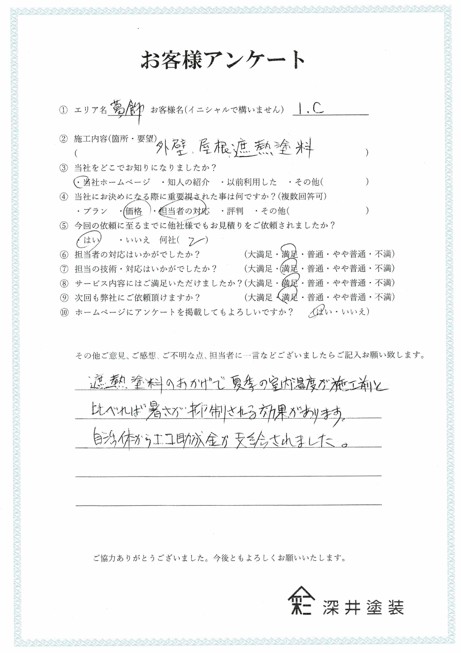 お客様アンケート
① エリア名 葛飾 お客様名(イニシャルで構いません) I.C
② 施工内容(箇所・要望)
( 外壁、屋根遮熱塗料 )
③ 当社をどこでお知りになりましたか?
・当社ホームページ ・知人の紹介 ・以前利用した ・その他( )
④ 当社にお決めになる際に重要視された事は何ですか?(複数回答可)
・プラン ・価格 ・担当者の対応 ・評判 ・その他( )
⑤ 今回の依頼に至るまでに他社様でもお見積りをご依頼されましたか?
・はい ・いいえ 何社( 2 )
⑥ 担当者の対応はいかがでしたか? (大満足・満足・普通・やや普通・不満)
⑦ 担当の技術・対応はいかがでしたか? (大満足・満足・普通・やや普通・不満)
⑧ サービス内容にはご満足いただけましたか?(大満足・満足・普通・やや普通・不満)
⑨ 次回も弊社にご依頼頂けますか? (大満足・満足・普通・やや普通・不満)
⑩ ホームページにアンケートを掲載してもよろしいですか? (はい・いいえ)
その他ご意見、ご感想、ご不明な点、担当者に一言などございましたらご記入お願い致します。
遮熱塗料のおかげで夏季の室内温度が施工前と
比べれば暑さが抑制される効果があります。
自治体からエコ助成金が支給されました。
ご協力ありがとうございました。今後ともよろしくお願いいたします。
深井塗装